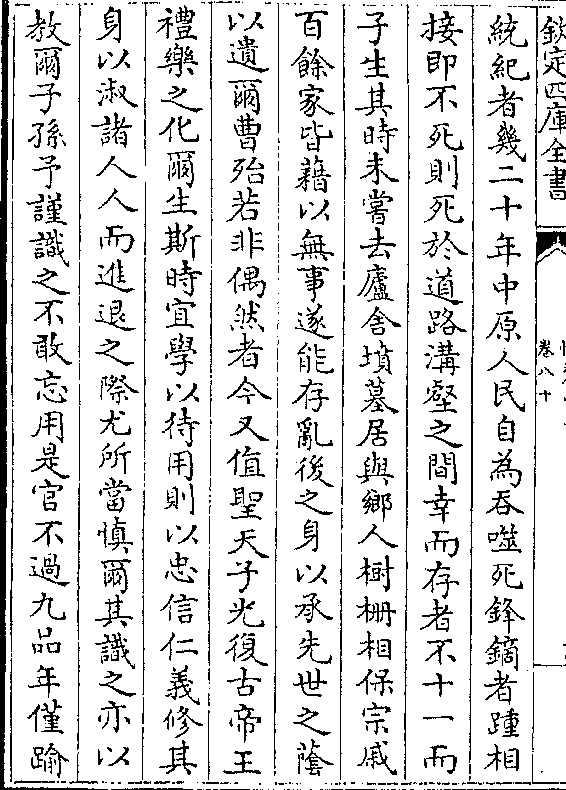 欽定四庫全書
卷八十
統紀者幾二十年中原人民自為吞噬死鋒鏑者踵相
接即不死則死於道路溝壑之間幸而存者不十一而
子生其時未嘗去廬舍墳墓居與鄉人樹柵相保宗戚
百餘家皆藉以無事遂能存亂後之身以承先世之蔭
以遺爾曹殆若非偶然者今又值聖天子光復古帝王
禮樂之化爾生斯時宜學以待用則以忠信仁義修其
身以淑諸人人而進退之際尤所當慎爾其識之亦以
教爾子孫予謹識之不敢忘用是官不過九品年僅踰